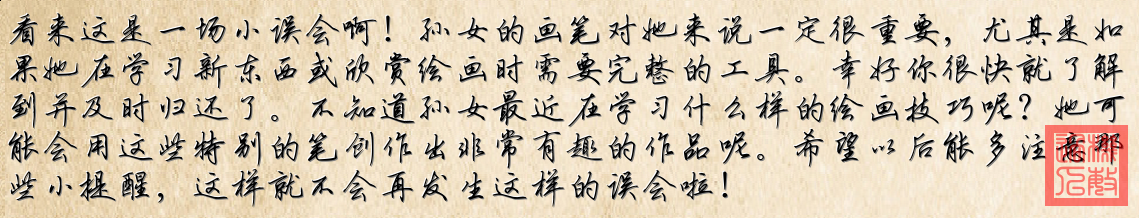 看来这是一场小误会啊！孙女的画笔对她来说一定很重要，尤其是如
果她在学习新东西或欣赏绘画时需要完整的工具。幸好你很快就了解
到并及时归还了。不知道孙女最近在学习什么样的绘画技巧呢？她可
能会用这些特别的笔创作出非常有趣的作品呢。希望以后能多注意那
些小提醒，这样就不会再发生这样的误会啦！